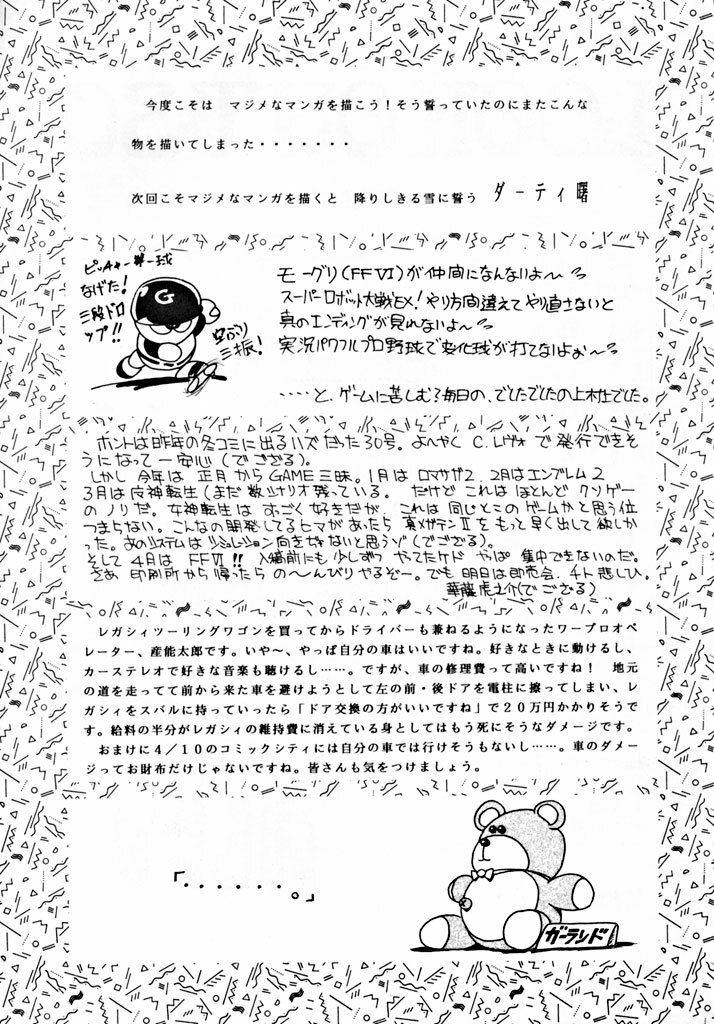 今度こそは　マジメなマンガを描こう！そう誓っていたのにまたこんな
物を描いてしまった・・・・・・・
次回こそマジメなマンガを描くと　降りしきる雪に誓う　ダーティ曙
ピッチャー第一球
なげた！
三段ドロ
ップ！！
G
空ぶり
三振！
モーグリ(FFⅥ)が仲間になんないよ〜
スーパーロボット大戦EX！やり方間違えてやり直さないと
真のエンディングが見れないよ〜
実況パワフルプロ野球で変化球が打てないよぉ〜
‥‥と、ゲームに苦しむ毎日の、でしたでしたの上村でした。
ホントは昨年の冬コミに出るハズだった30号。よーやく C.レヴォ で発行できそ
うになって一安心(でござる)。
しかし 今年は 正月からGAME三昧。1月は ロマサガ2、2月はエンブレム2
3月は女神転生(まだ数シナリオ残っている。 だけど これは ほとんど クソゲー
のノリだ。女神転生は すっごく好きだが、これは同じとこのゲームかと思う位
つまらない。こんなの開発してるヒマがあったら 真メガテンⅡ をもっと早く出して欲しか
った。あのシステムは シミュレーション向きじゃないと思うゾ(でござる)。
そして 4月は FFⅥ!! 入稿前にも少しずつ やってたケド やっぱ 集中できないのだ。
さあ 印刷所から帰ったら の〜んびりやるぞー。でも 明日は即売会。チト 悲しひ。
華籠虎之介(でござる)
レガシィツーリングワゴンを買ってからドライバーも兼ねるようになったワープロオペ
レーター、産能太郎です。いや〜、やっぱ自分の車はいいですね。好きなときに動けるし、
カーステレオで好きな音楽も聴けるし……。ですが、車の修理費って高いですね！　地元
の道を走ってて前から来た車を避けようとして左の前・後ドアを電柱に擦ってしまい、レ
ガシィをスバルに持っていったら「ドア交換の方がいいですね」で２０万円かかりそうで
す。給料の半分がレガシィの維持費に消えている身としてはもう死にそうなダメージです。
おまけに４／１０のコミックシティには自分の車では行けそうもないし……。車のダメー
ジってお財布だけじゃないですね。皆さんも気をつけましょう。
「・・・・・・。」
ガーランド